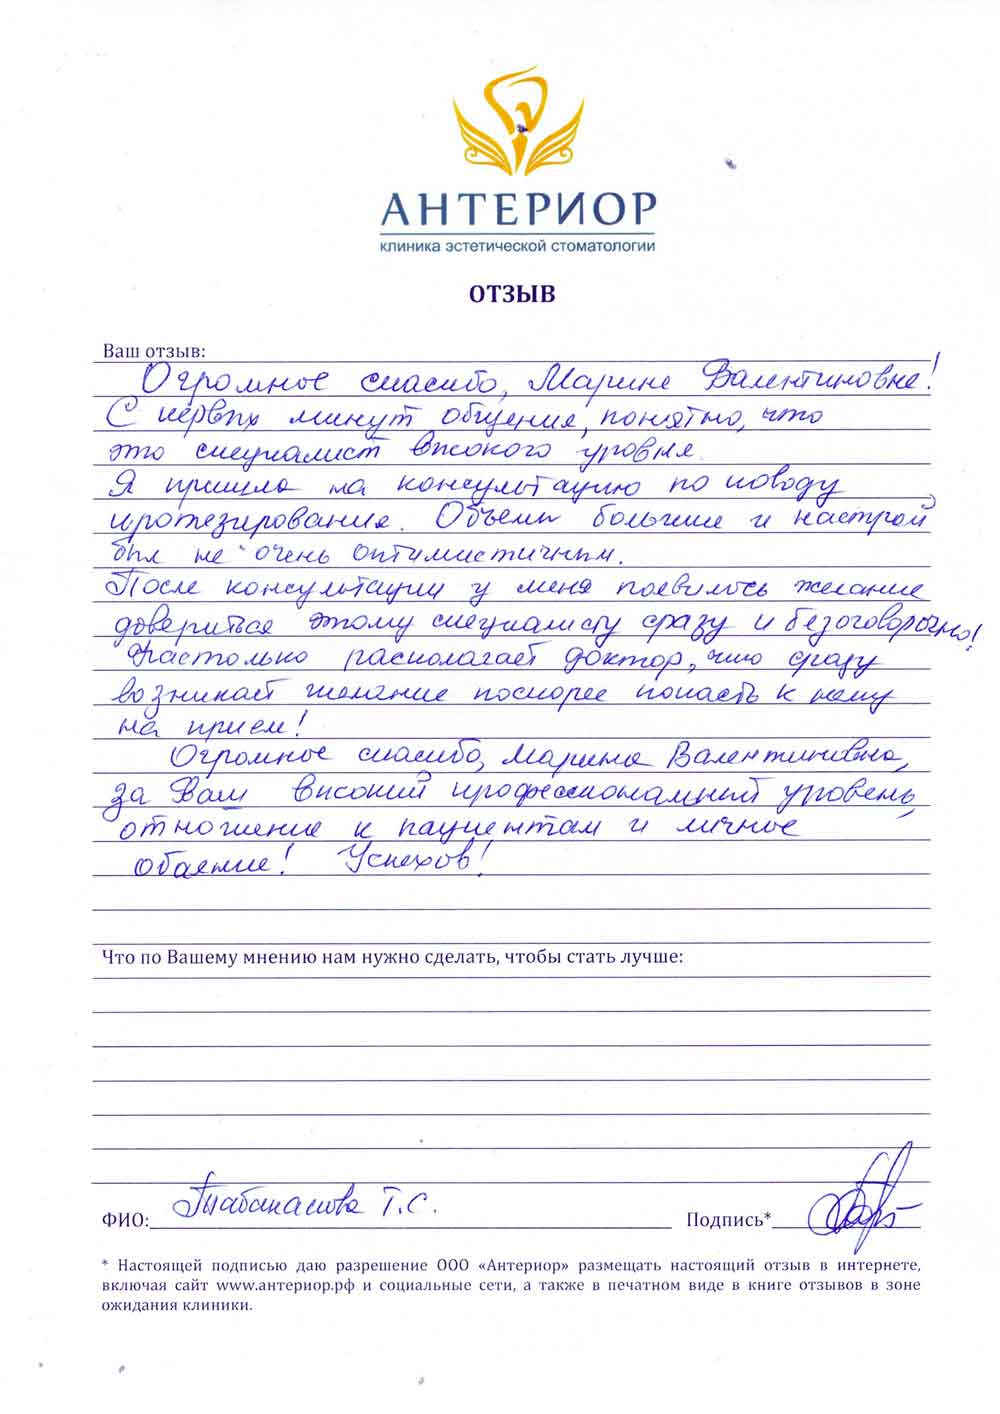 АНТЕРИОР
клиника эстетической стоматологии
ОТЗЫВ
Ваш отзыв:
Огромное спасибо, Марине Валентиновне!
С первых минут общения, понятно, что
это специалист высокого уровня.
Я пришла на консультацию по поводу
протезирования. Объемы большие и настрой
был не очень оптимистичным.
После консультации у меня появилось желание
довериться этому специалисту сразу и безоговорочно!
Настолько располагает доктор, что сразу
возникает желание поскорее попасть к нему
на прием!
Огромное спасибо, Марина Валентиновна,
за Ваш высокий профессиональный уровень,
отношение к пациентам и личное
обаяние! Успехов!
Что по Вашему мнению нам нужно сделать, чтобы стать лучше:
ФИО: Т.С. Подпись*
* Настоящей подписью даю разрешение ООО «Антериор» размещать настоящий отзыв в интернете,
включая сайт www.антериор.рф и социальные сети, а также в печатном виде в книге отзывов в зоне
ожидания клиники.